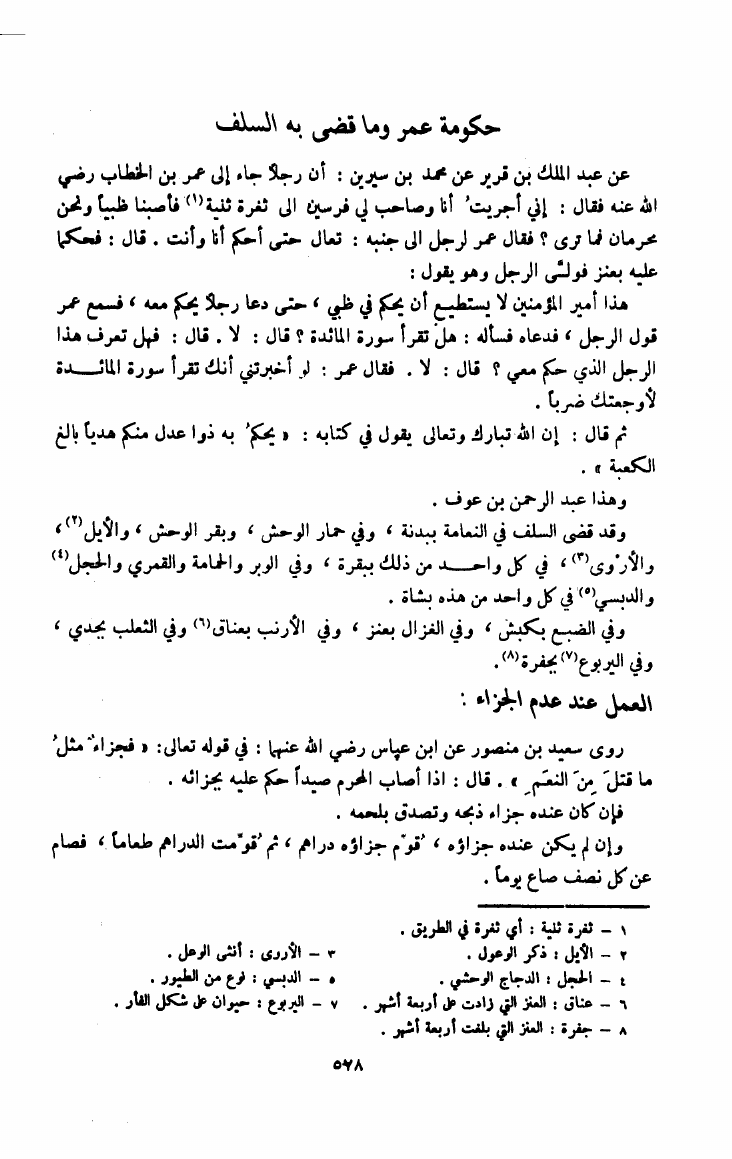 حكومة عمر وما قضى به السلف
عن عبد الملك بن قرير عن محمد بن سيرين : أن رجلاً جاء إلى عمر بن الخطاب رضي
الله عنه فقال : إني أجريتُ أنا وصاحب لي فرسين الى ثغرة ثنية(١) فأصبنا ظبياً ونحن
محرمان فما ترى ؟ فقال عمر لرجل الى جنبه : تعال حتى أحكم أنا وأنت . قال : فحكما
عليه بعنز فولّى الرجل وهو يقول :
هذا أمير المؤمنين لا يستطيع أن يحكم في ظبي ، حتى دعا رجلاً يحكم معه ، فسمع عمر
قول الرجل ، فدعاه فسأله : هل تقرأ سورة المائدة ؟ قال : لا . قال : فهل تعرف هذا
الرجل الذي حكم معي ؟ قال : لا . فقال عمر : لو أخبرتني أنك تقرأ سورة المائـــدة
لأوجعتك ضرباً .
ثم قال : إن الله تبارك وتعالى يقول في كتابه : « يحكمُ به ذوا عدل منكم هدياً بالغ
الكعبة » .
وهذا عبد الرحمن بن عوف .
وقد قضى السلف في النعامة ببدنة ، وفي حمار الوحش ، وبقر الوحش ، والأيل(٢) ،
والأرْوى(٣) ، في كل واحـــد من ذلك ببقرة ، وفي الوبر والحمامة والقمري والحجل(٤)
والدبسي(٥) في كل واحد من هذه بشاة .
وفي الضبع بكبش ، وفي الغزال بعنز ، وفي الأرنب بعناق(٦) وفي الثعلب بجدي ،
وفي اليربوع(٧) بجفرة(٨) .
العمل عند عدم الجزاء :
روى سعيد بن منصور عن ابن عباس رضي الله عنهما : في قوله تعالى : « فجزاءٌ مثلُ
ما قتلَ مِنَ النعَمِ » . قال : اذا أصاب المحرم صيداً حكم عليه بجزائه .
فإن كان عنده جزاء ذبحه وتصدق بلحمه .
وإن لم يكن عنده جزاؤه ، قُوّم جزاؤه دراهم ، ثم قُوّمت الدراهم طعاماً ، فصام
عن كل نصف صاع يوماً .
١ – ثغرة ثنية : أي ثغرة في الطريق .
٢ – الأيل : ذكر الوعول . ٣ – الأروى : أنثى الوعل .
٤ – الحجل : الدجاج الوحشي . ٥ – الدبسي : نوع من الطيور .
٦ – عناق : العنز التي زادت على أربعة أشهر . ٧ – اليربوع : حيوان على شكل الفأر .
٨ – جفرة : العنز التي بلغت أربعة أشهر .
٥٦٨